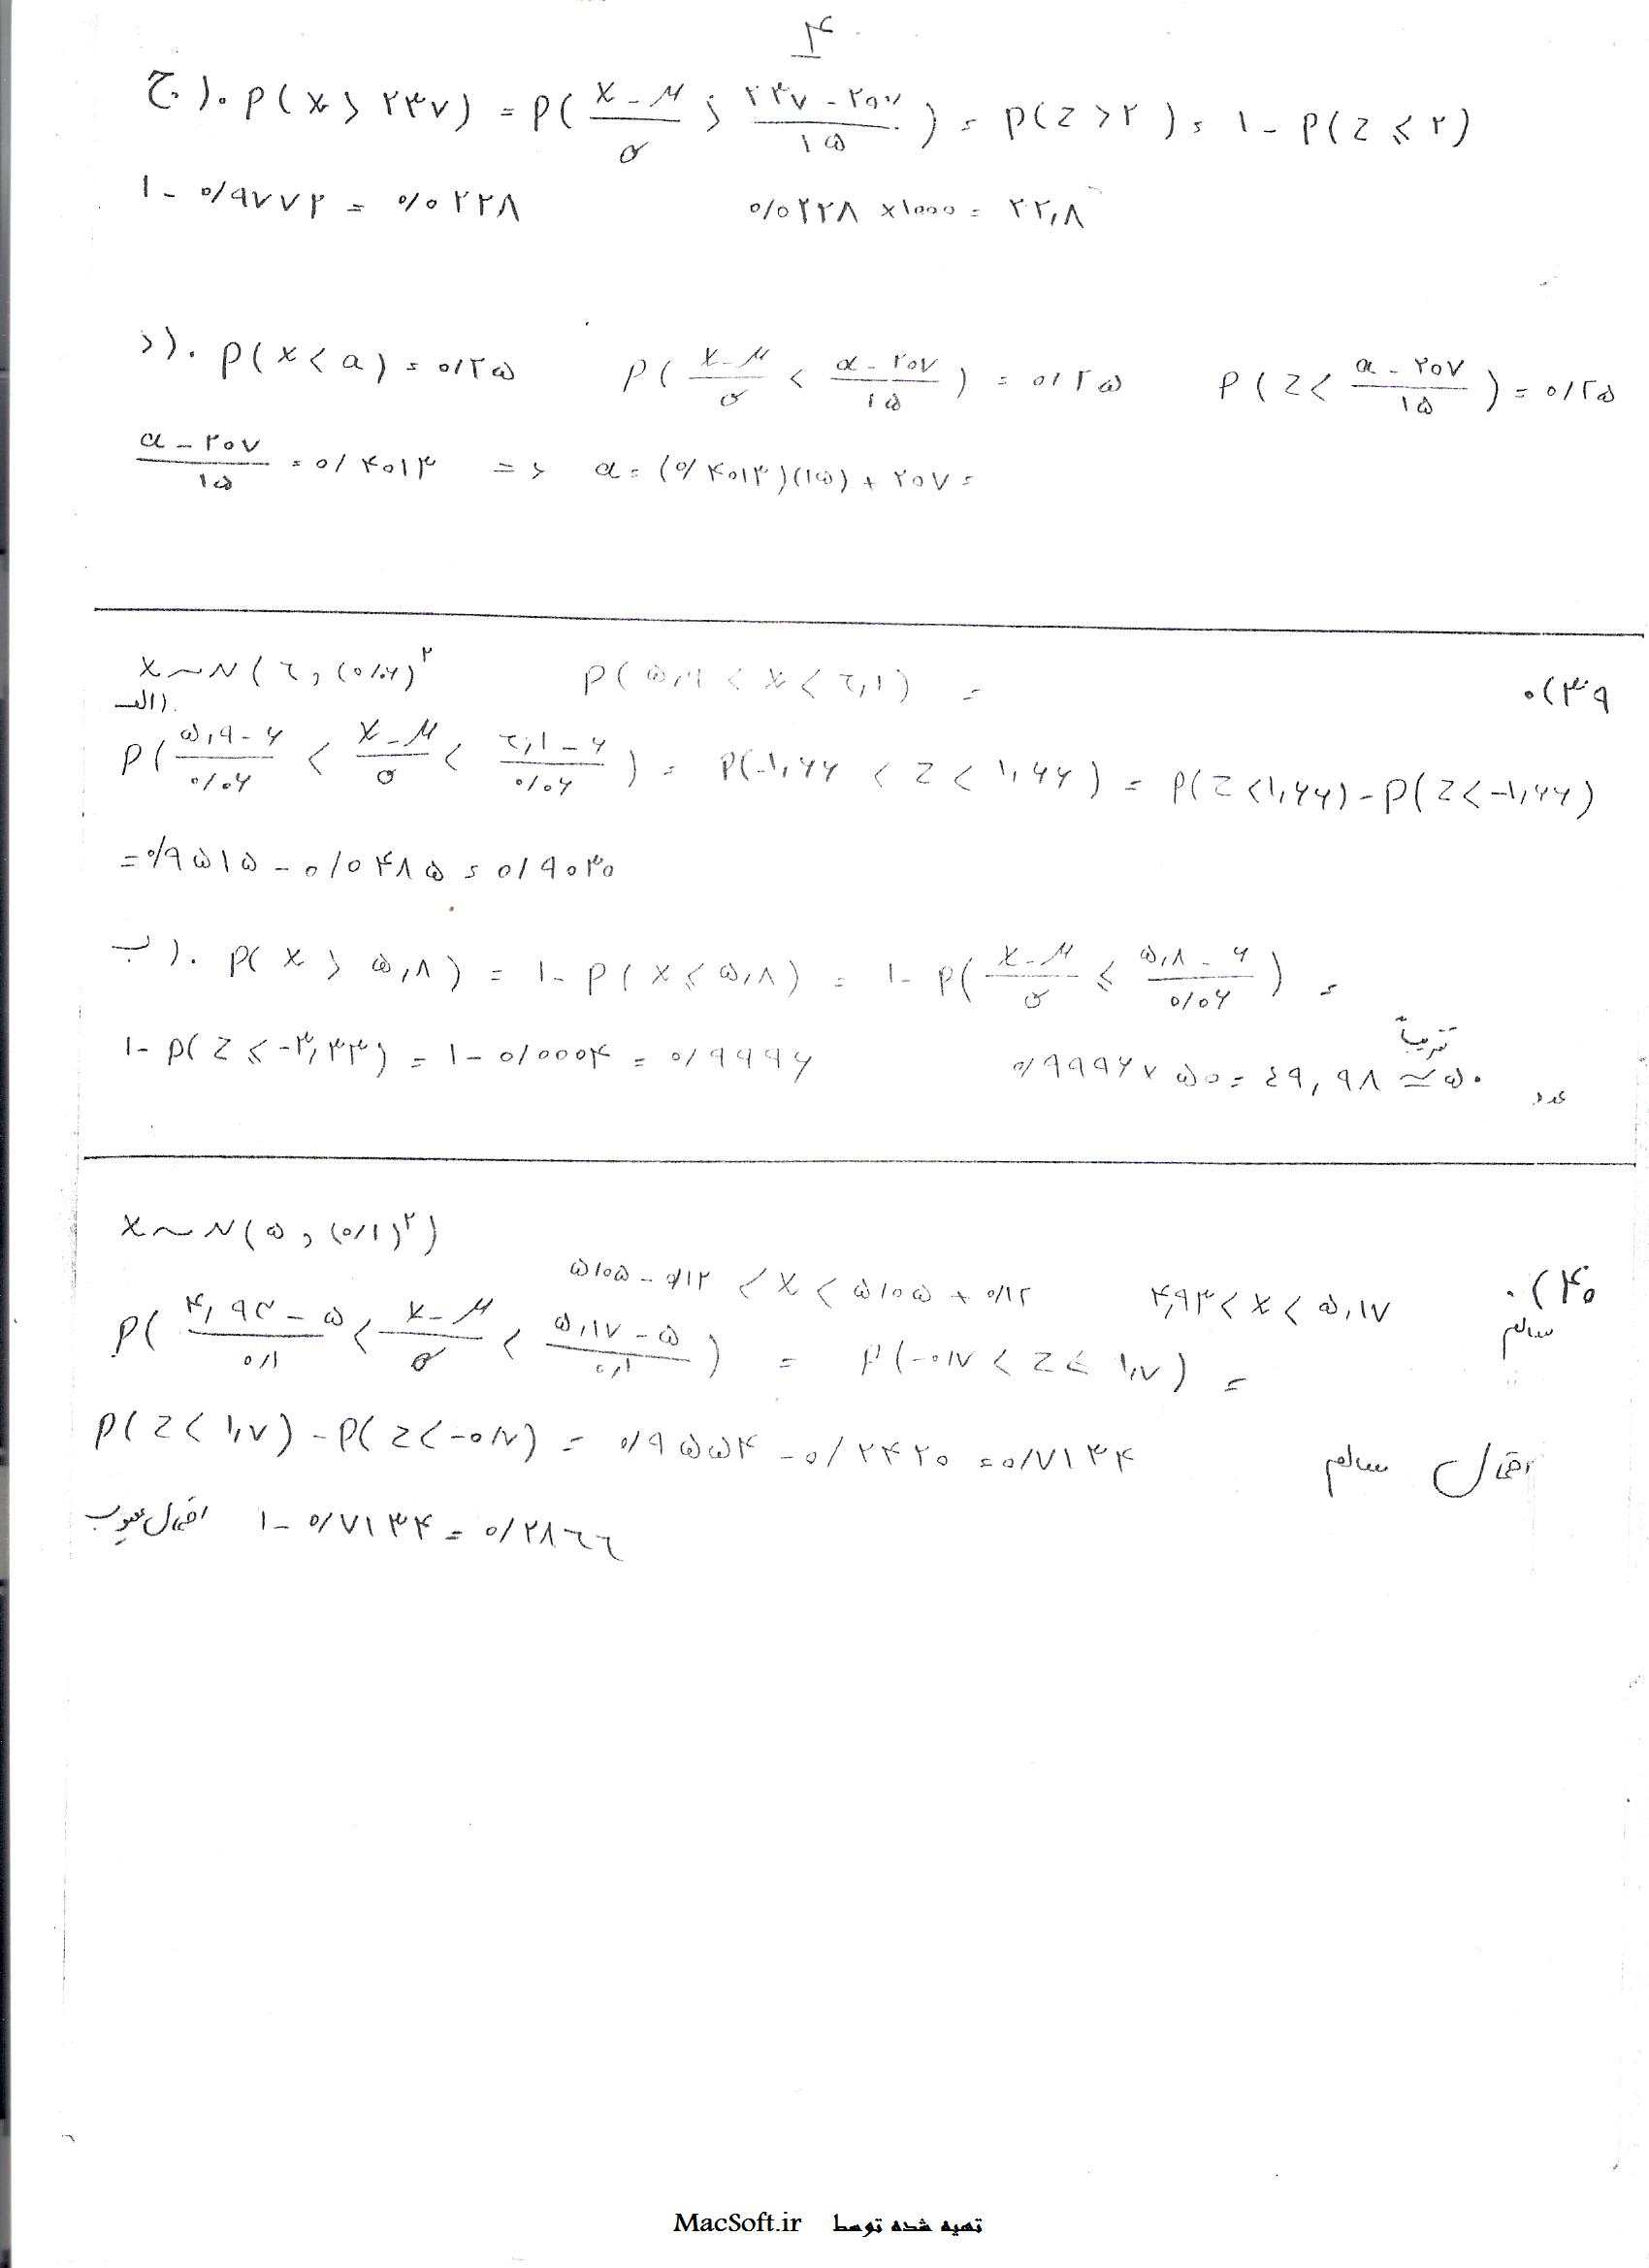 ۴
ج). P(x > ۲۳۷) = P( (x-μ)/σ > (۲۳۷-۲۰۷)/۱۵ ) = P(z > ۲) = ۱- P(z ≤ ۲)
۱- ۰/۹۷۷۲ = ۰/۰۲۲۸ ۰/۰۲۲۸ ×۱۰۰۰ = ۲۲,۸
د). P(x < a) = ۰/۲۵ P( (x-μ)/σ < (a-۲۰۷)/۱۵ ) = ۰/۲۵ P(z < (a-۲۰۷)/۱۵ ) = ۰/۲۵
(a-۲۰۷)/۱۵ = ۰/۴۰۱۳ => a = (۰/۴۰۱۳)(۱۵) + ۲۰۷ =
x~N(٦ , (۰/۰۶)^۲ P(۵,۹ < x < ٦,۱) = ۳۹).
الف).
P( (۵,۹-۶)/۰/۰۶ < (x-μ)/σ < (٦,۱-۶)/۰/۰۶ ) = P(-۱,۶۶ < z < ۱,۶۶) = P(z < ۱,۶۶) - P(z < -۱,۶۶)
= ۰/۹۵۱۵ - ۰/۰۴۸۵ = ۰/۹۰۳۰
ب). P(x > ۵,۸) = ۱- P(x ≤ ۵,۸) = ۱- P( (x-μ)/σ ≤ (۵,۸-۶)/۰/۰۶ ) =
۱- P(z ≤ -۳,۳۳) = ۱- ۰/۰۰۰۴ = ۰/۹۹۹۶ ۰/۹۹۹۶ × ۵۰ = ٤۹,۹۸ ≃ ۵۰ تقریباً عدد
x~N(۵ , (۰/۱)^۲)
۴۰). سالم ۵/۰۵ - ۰/۱۲ < x < ۵/۰۵ + ۰/۱۲ ۴,۹۳ < x < ۵,۱۷
P( (۴,۹۳-۵)/۰/۱ < (x-μ)/σ < (۵,۱۷-۵)/۰,۱ ) = P(-۰/۷ < z < ۱,۷) =
P(z < ۱,۷) - P(z < -۰/۷) = ۰/۹۵۵۴ - ۰/۲۴۲۰ = ۰/۷۱۳۴ احتمال سالم
احتمال معیوب ۱- ۰/۷۱۳۴ = ۰/۲۸٦٦
تهیه شده توسط MacSoft.ir